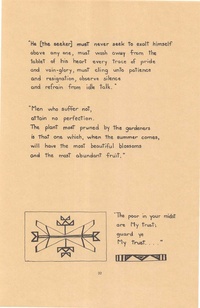 "He [the seeker] must never seek to exalt himself
above any one, must wash away from the
tablet of his heart every trace of pride
and vain-glory, must cling unto patience
and resignation, observe silence
and refrain from idle talk."
"Men who suffer not,
attain no perfection.
The plant most pruned by the gardeners
is that one which, when the summer comes,
will have the most beautiful blossoms
and the most abundant fruit."
"The poor in your midst
are My trust;
guard ye
My trust....."